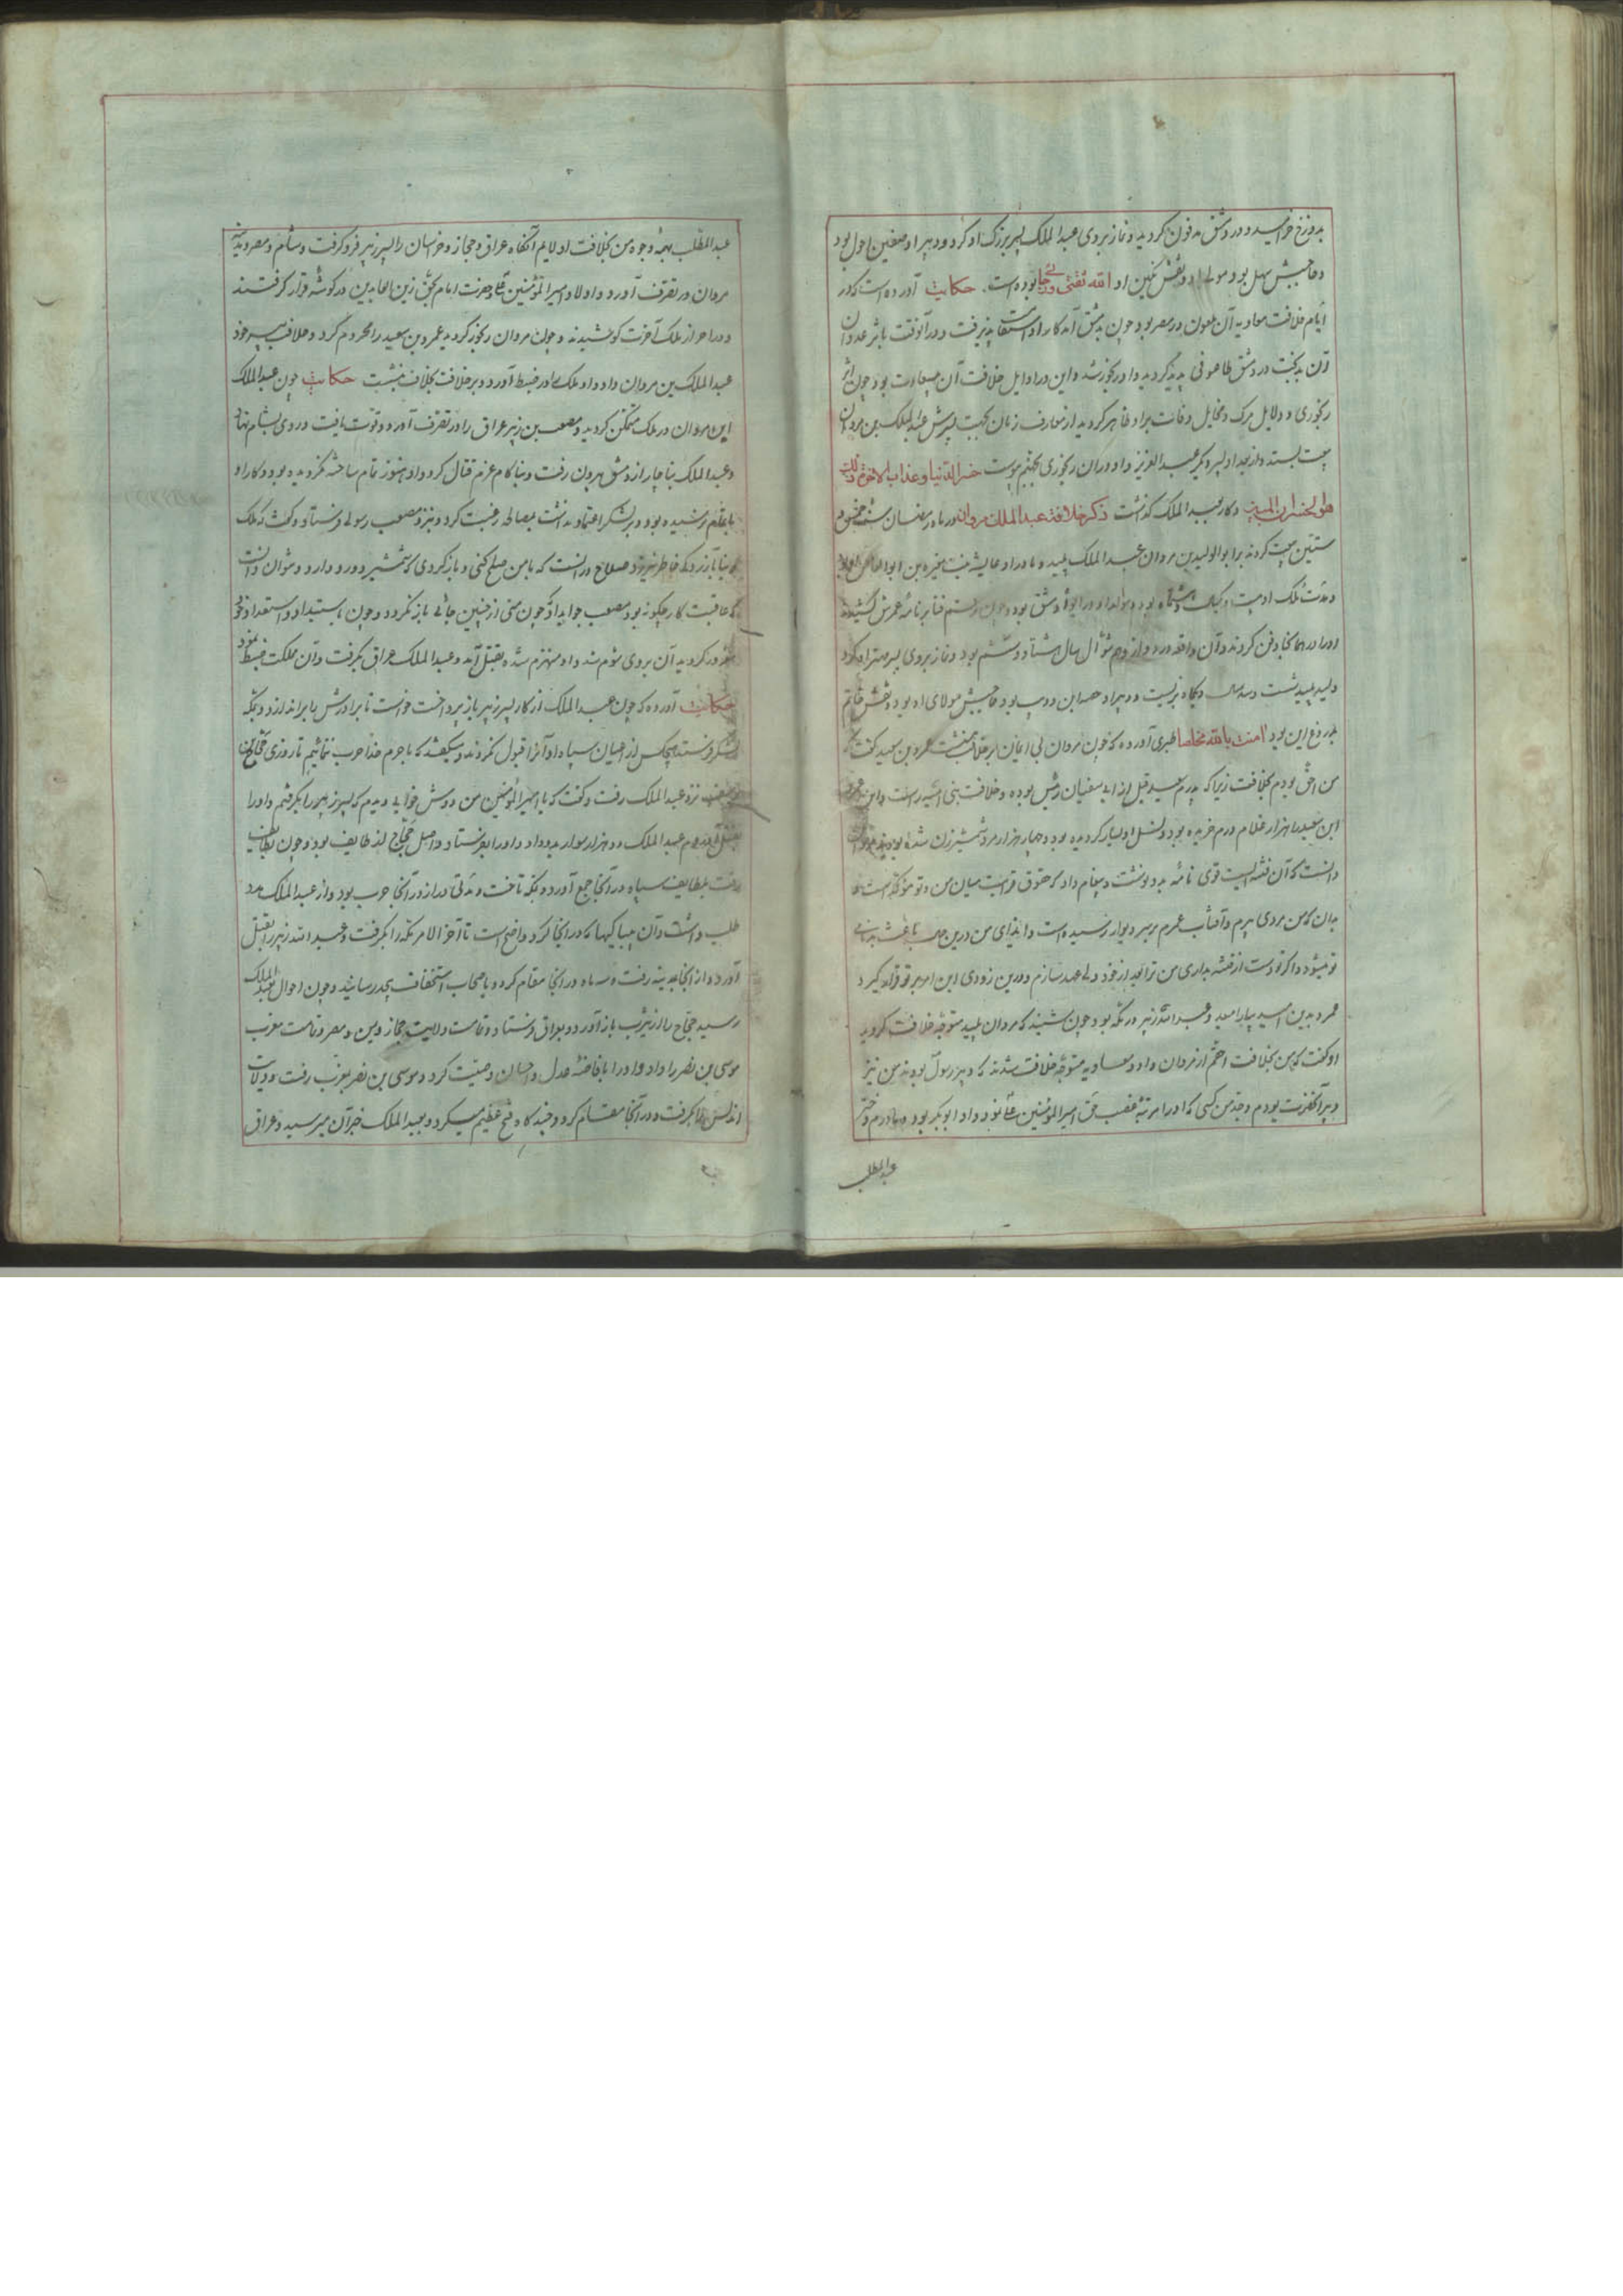 بدوزخ خرامید و در دمشق مدفون کردید و نماز بر وی عبد الملک پسر بزرک او کرد و دبیر او سفین احول بود
و حاجبش سهل بود مولی او و نقش نکین او الله ثقتی و رجائی بوده است. حکایت آورده است که در
ایام خلافت معاویه آن ملعون در مصر بود چون بدمشق آمد کار او استقامت پذیرفت و در آنوقت باثر عدوان
آن بدبخت در دمشق طاعونی پدید کردید و او رنجور شد و این در اوایل خلافت آن بود چون اثر
رنجوری و دلایل مرک و مخایل وفات بر او ظاهر کردید از معارف زمان بجهت پسرش عبد الملک بن مروان
بیعت بستد و از بعد او پسر دیکر عبد العزیز و او در آن رنجوری بجهنم پیوست خسر الدنیا و عذاب الاخرة ذلک
هو الخسران المبین و کار بعبد الملک کذشت ذکر خلافة عبد الملک مروان در ماه رمضان سنه خمس و
ستین بیعت کردند بر ابو الولید بن مروان عبد الملک پلید و مادر او عایشه بنت مغیره بن ابو العاص
و مدت ملک او بیست و یکسال و بود و مولد او در دمشق بود و چون رقم فنا بر نامه عمرش کشیدند
او را در همانجا دفن کردند و آن واقعه در دوازدهم شوال سال هشتاد و ششم بود و نماز بر وی پسر مهتر او کرد
ولید پلید شصت و سه سال و پنجاه بزیست و دبیر او بود حاجبش مولای او بود و نقش خاتم
بدروغ این بود امنت بالله مخلصا طبری آورده که چون مروان بی ایمان بر خلافت بنشست عمرو بن سعید کفت که
من احق بودم بخلافت زیرا که پدرم سعید قبل از ابی سفیان رئیس بوده و خلافت بنی امیه راست و این عمرو
ابن سعید را هزار غلام درم خریده بود و نسل او بسیار کردیده بود و چهار هزار مرد شمشیرزن شده بودند مروان
دانست که آن فتنه ایست قوی نامه بدو نوشت و پیغام داد که حقوق قرابت میان من و تو مؤکد است
بدان که من مردی پیرم و آفتاب عمرم بر سر دیوار رسیده است و ایذای من درین باعث بدنامی
تو میشود و اکر تو دست از فتنه بداری من ترا بعد از خود ولی عهد سازم و درین زودی این امر بر تو قرار کیرد
عمرو بدین امید بیارامید و عبد الله زبیر در مکه بود چون شنید که مروان پلید متوجه خلافت کردید
او کفت که من بخلافت احقم از مروان و او و معاویه متوجه خلافت شدند که دبیر رسول بودند من نیز
دبیر آنحضرت بودم و جد من کسی که او را مرتبه غصب حق امیر المؤمنین علی نمود و او ابو بکر بود و مادرم دختر
عبد المطلب
عبد المطلب بهمه وجوه من بخلافت اولایم آنکاه عراق و حجاز و خراسان را پسر زبیر فرو کرفت و شام و مصر و مدینه
مروان در تصرف آورد و اولاد امیر المؤمنین علی و حضرت امام بحق زین العابدین در کوشه قرار کرفتند
و در احراز ملک آخرت کوشیدند و چون مروان رنجور کردید عمرو بن سعید را محروم کرد و خلافت بپسر خود
عبد الملک بن مروان داد و او ملک را در ضبط آورد و بر خلافت بخلاف بنشست حکایت چون عبد الملک
ابن مروان در ملک متمکن کردید و مصعب بن زبیر عراق را در تصرف آورد و قوت یافت و روی بشام نهاد
و عبد الملک بناچار از دمشق بیرون رفت و بناکام عزم قتال کرد و او هنوز تمام ساخته نکردیده بود و کار او
باتمام نرسیده بود و بر لشکر اعتماد نداشت بمصالحه رغبت کرد و بنزد مصعب رسولی فرستاد و کفت که ملک
دنیا باز نرود صلاح در آنست که با من صلح کنی و باز کردی که شمشیر دو رو دارد و نتوان دانست
که عاقبت کار چکونه بود مصعب جواب داد که چون منی از چنین جائی باز نکردد و چون باستبداد و استعداد خود
مغرور کردید آن بر وی شوم شد و او منهزم شده بقتل آمد و عبد الملک عراق بکرفت و آن مملکت ضبط نمود
حکایت آورده که چون عبد الملک از کار پسر زبیر باز پرداخت خواست تا برادرش را براندازد و بمکه
لشکر فرستد هیچکس از اعیان سپاه او آنرا قبول نکردند و میکفتند که با حرم خدا حرب ننمائیم تا روزی حجاج بن
یوسف نزد عبد الملک رفت و کفت که یا امیر المؤمنین من دوش خوابی دیدم که پسر زبیر را بکرفتم و او را
بقتل آوردم عبد الملک دو هزار سوار بدو داد و او را بفرستاد و اصل حجاج از طایف بود و چون بطایف
رفت بطایف سپاه در آنجا جمع آورد و بمکه تاخت و مدتی دراز در آنجا حرب بود و از عبد الملک مدد
طلب داشت و آن بیباکیها که در آنجا کرد واضح است تا آخر الامر مکه را بکرفت و عبد الله زبیر را بقتل
آورد و از آنجا بمدینه رفت و سه ماه در آنجا مقام کرد و باصحاب استخفاف بیحد رسانید و چون احوال بعبد الملک
رسید حجاج را از یثرب باز آورد و بعراق فرستاد و تمامت ولایت حجاز و یمن و مصر و تمامت مغرب
موسی بن نصر را داد و او را بافاضه عدل و احسان وصیت کرد و موسی بن نصر بمغرب رفت و ولایت
اندلس را بکرفت و در آنجا مقام کرد و چند کاه فتح عظیم میکرد و بعبد الملک خبر آن میرسید و عراق